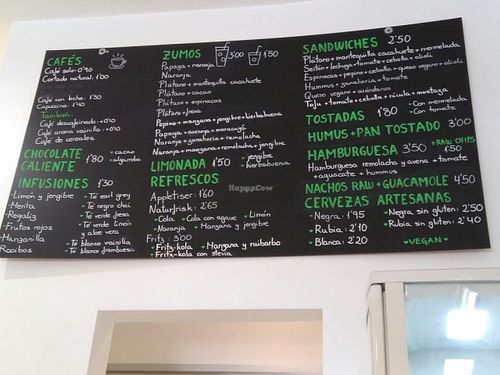 CAFÉS
Café solo: 0'90
Cortado natural: 1'00
Café con leche: 1'30
Capuccino: 1'30
También:
Café descafeinado: +0'10
Café aroma vainilla: +0'10
Café de cereales
CHOCOLATE CALIENTE 1'80
- cacao
- algarroba
INFUSIONES 1'30
- Limón y jengibre
- Menta
- Regaliz
- Frutos rojos
- Manzanilla
- Rooibos
- Té earl grey
- Té negro chai
- Té verde fresa
- Té verde limón y aloe vera
- Té blanco vainilla
- Té blanco frambuesa
ZUMOS 3'00 1'50
Papaya + naranja
Naranja
Plátano + mantequilla cacahuete
Plátano + cacao
Plátano + espinacas
Plátano + fresa
Pepino + manzana + jengibre + hierbabuena
Papaya + naranja + maracuyá
Naranja + zanahoria + remolacha
Naranja + manzana + remolacha + jengibre
LIMONADA 1'50
+ jengibre
+ hierbabuena
REFRESCOS
Appletiser: 1'60
Naturfrisk: 2'65
Cola
Cola con agave
Limón
Naranja
Manzana y jengibre
Fritz: 3'00
Fritz-kola
Manzana y ruibarbo
Fritz-kola con stevia
SANDWICHES 2'50
Plátano + mantequilla cacahuete + mermelada
Seitán + lechuga + tomate + cebolla + alioli
Espinacas + pepino + cebolla + queso vegano + alioli
Hummus + zanahoria + tomate
Queso vegano + arándanos
Tofu + tomate + cebolla + rúcula + mostaza
TOSTADAS 1'80
- Con mermelada
- Con tomate
HUMUS + PAN TOSTADO 3'00
HAMBURGUESA 3'50
+ RAW CHIPS 4'50
Hamburguesa remolacha y avena + tomate
+ aguacate + hummus
NACHOS RAW + GUACAMOLE 4'50
CERVEZAS ARTESANAS
Negra: 1'95
Rubia: 2'10
Blanca: 2'20
Negra sin gluten: 2'50
Rubia sin gluten: 2'40
VEGAN
HappyCow